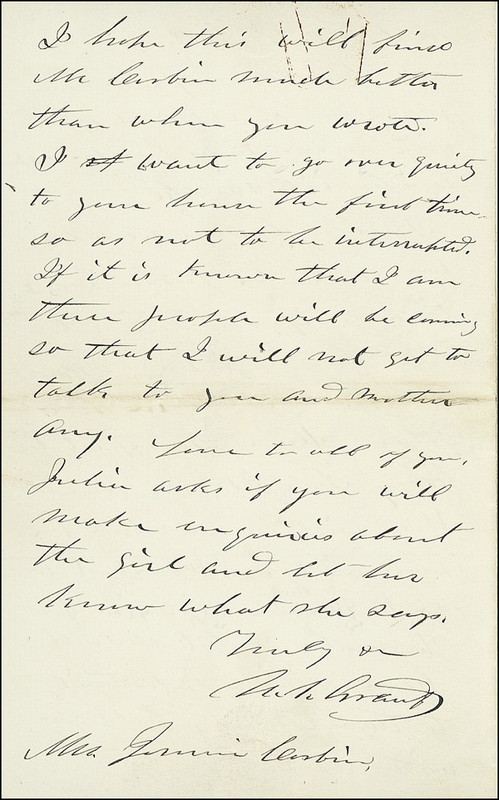 I hope this will find
Mr Corbin much better
than when you wrote.
I want to go over quietly
to your house the first time
so as not to be interrupted.
If it is known that I am
there people will be coming
so that I will not get to
talk to you and mother
any. Love to all of you.
Julia asks if you will
make inquiries about
the girl and let her
know what she says.
Truly &c
U. S. Grant
Mrs. Jennie Corbin,